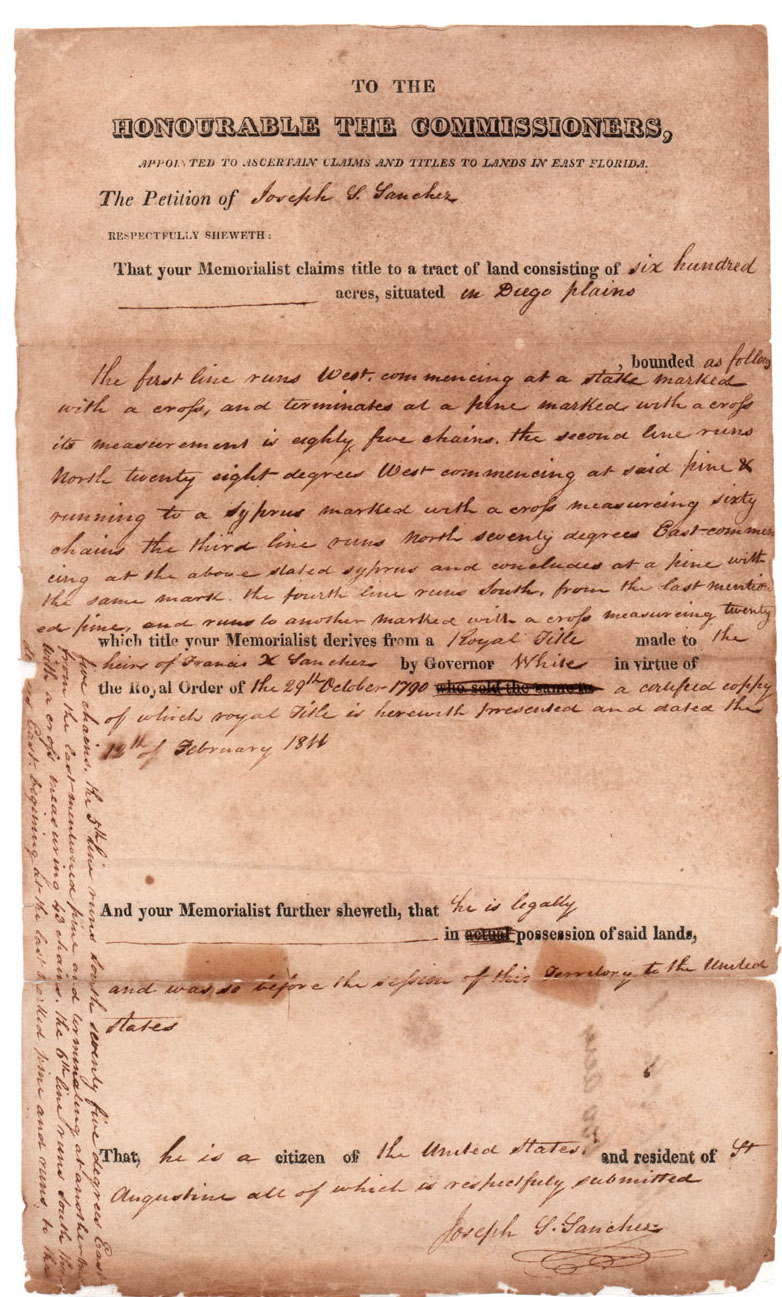 TO THE
HONOURABLE THE COMMISSIONERS,
APPOINTED TO ASCERTAIN CLAIMS AND TITLES TO LANDS IN EAST FLORIDA.
The Petition of Joseph S. Sanchez
RESPECTFULLY SHEWETH:
That your Memorialist claims title to a tract of land consisting of six hundred
acres, situated in Diego plains
, bounded as follows
the first line runs West, commencing at a stake marked
with a cross, and terminates at a pine marked with a cross
its measurement is eighty five chains. the second line runs
North twenty eight degrees West commencing at said pine &
running to a Syprus marked with a cross measurcing sixty
chains the third line runs North seventy degrees East commen
cing at the above stated syprus and concludes at a pine with
the same mark. the fourth line runs South, from the last mention
ed pine, and runs to another marked with a cross measuring twenty
five chains. the 5th line runs south seventy five degrees East
from the last mentioned pine and terminating at another
with a cross measuring 43 chains. the 6th line runs South
East. begining at the last marked pine and runs to the
which title your Memorialist derives from a Royal Title made to the
heirs of Francis X Sanchez by Governor White in virtue of
the Royal Order of the 29th October 1790 who sold the same to a certified coppy
of which royal Title is herewith presented and dated the
12th of February 1811
And your Memorialist further sheweth, that he is legally
in actual possession of said lands,
and was so before the session of this Territory to the United
states
That, he is a citizen of the United States. and resident of St
Augustine all of which is respecfuly submitted
Joseph S. Sanchez